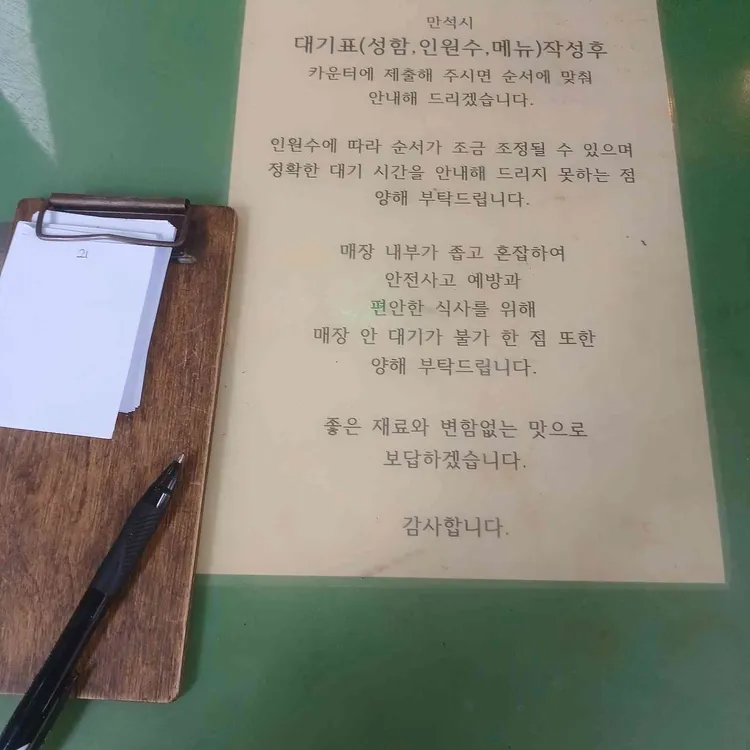 만석시
대기표(성함,인원수,메뉴)작성후
카운터에 제출해 주시면 순서에 맞춰
안내해 드리겠습니다.
인원수에 따라 순서가 조금 조정될 수 있으며
정확한 대기 시간을 안내해 드리지 못하는 점
양해 부탁드립니다.
매장 내부가 좁고 혼잡하여
안전사고 예방과
편안한 식사를 위해
매장 안 대기가 불가 한 점 또한
양해 부탁드립니다.
좋은 재료와 변함없는 맛으로
보답하겠습니다.
감사합니다.
21